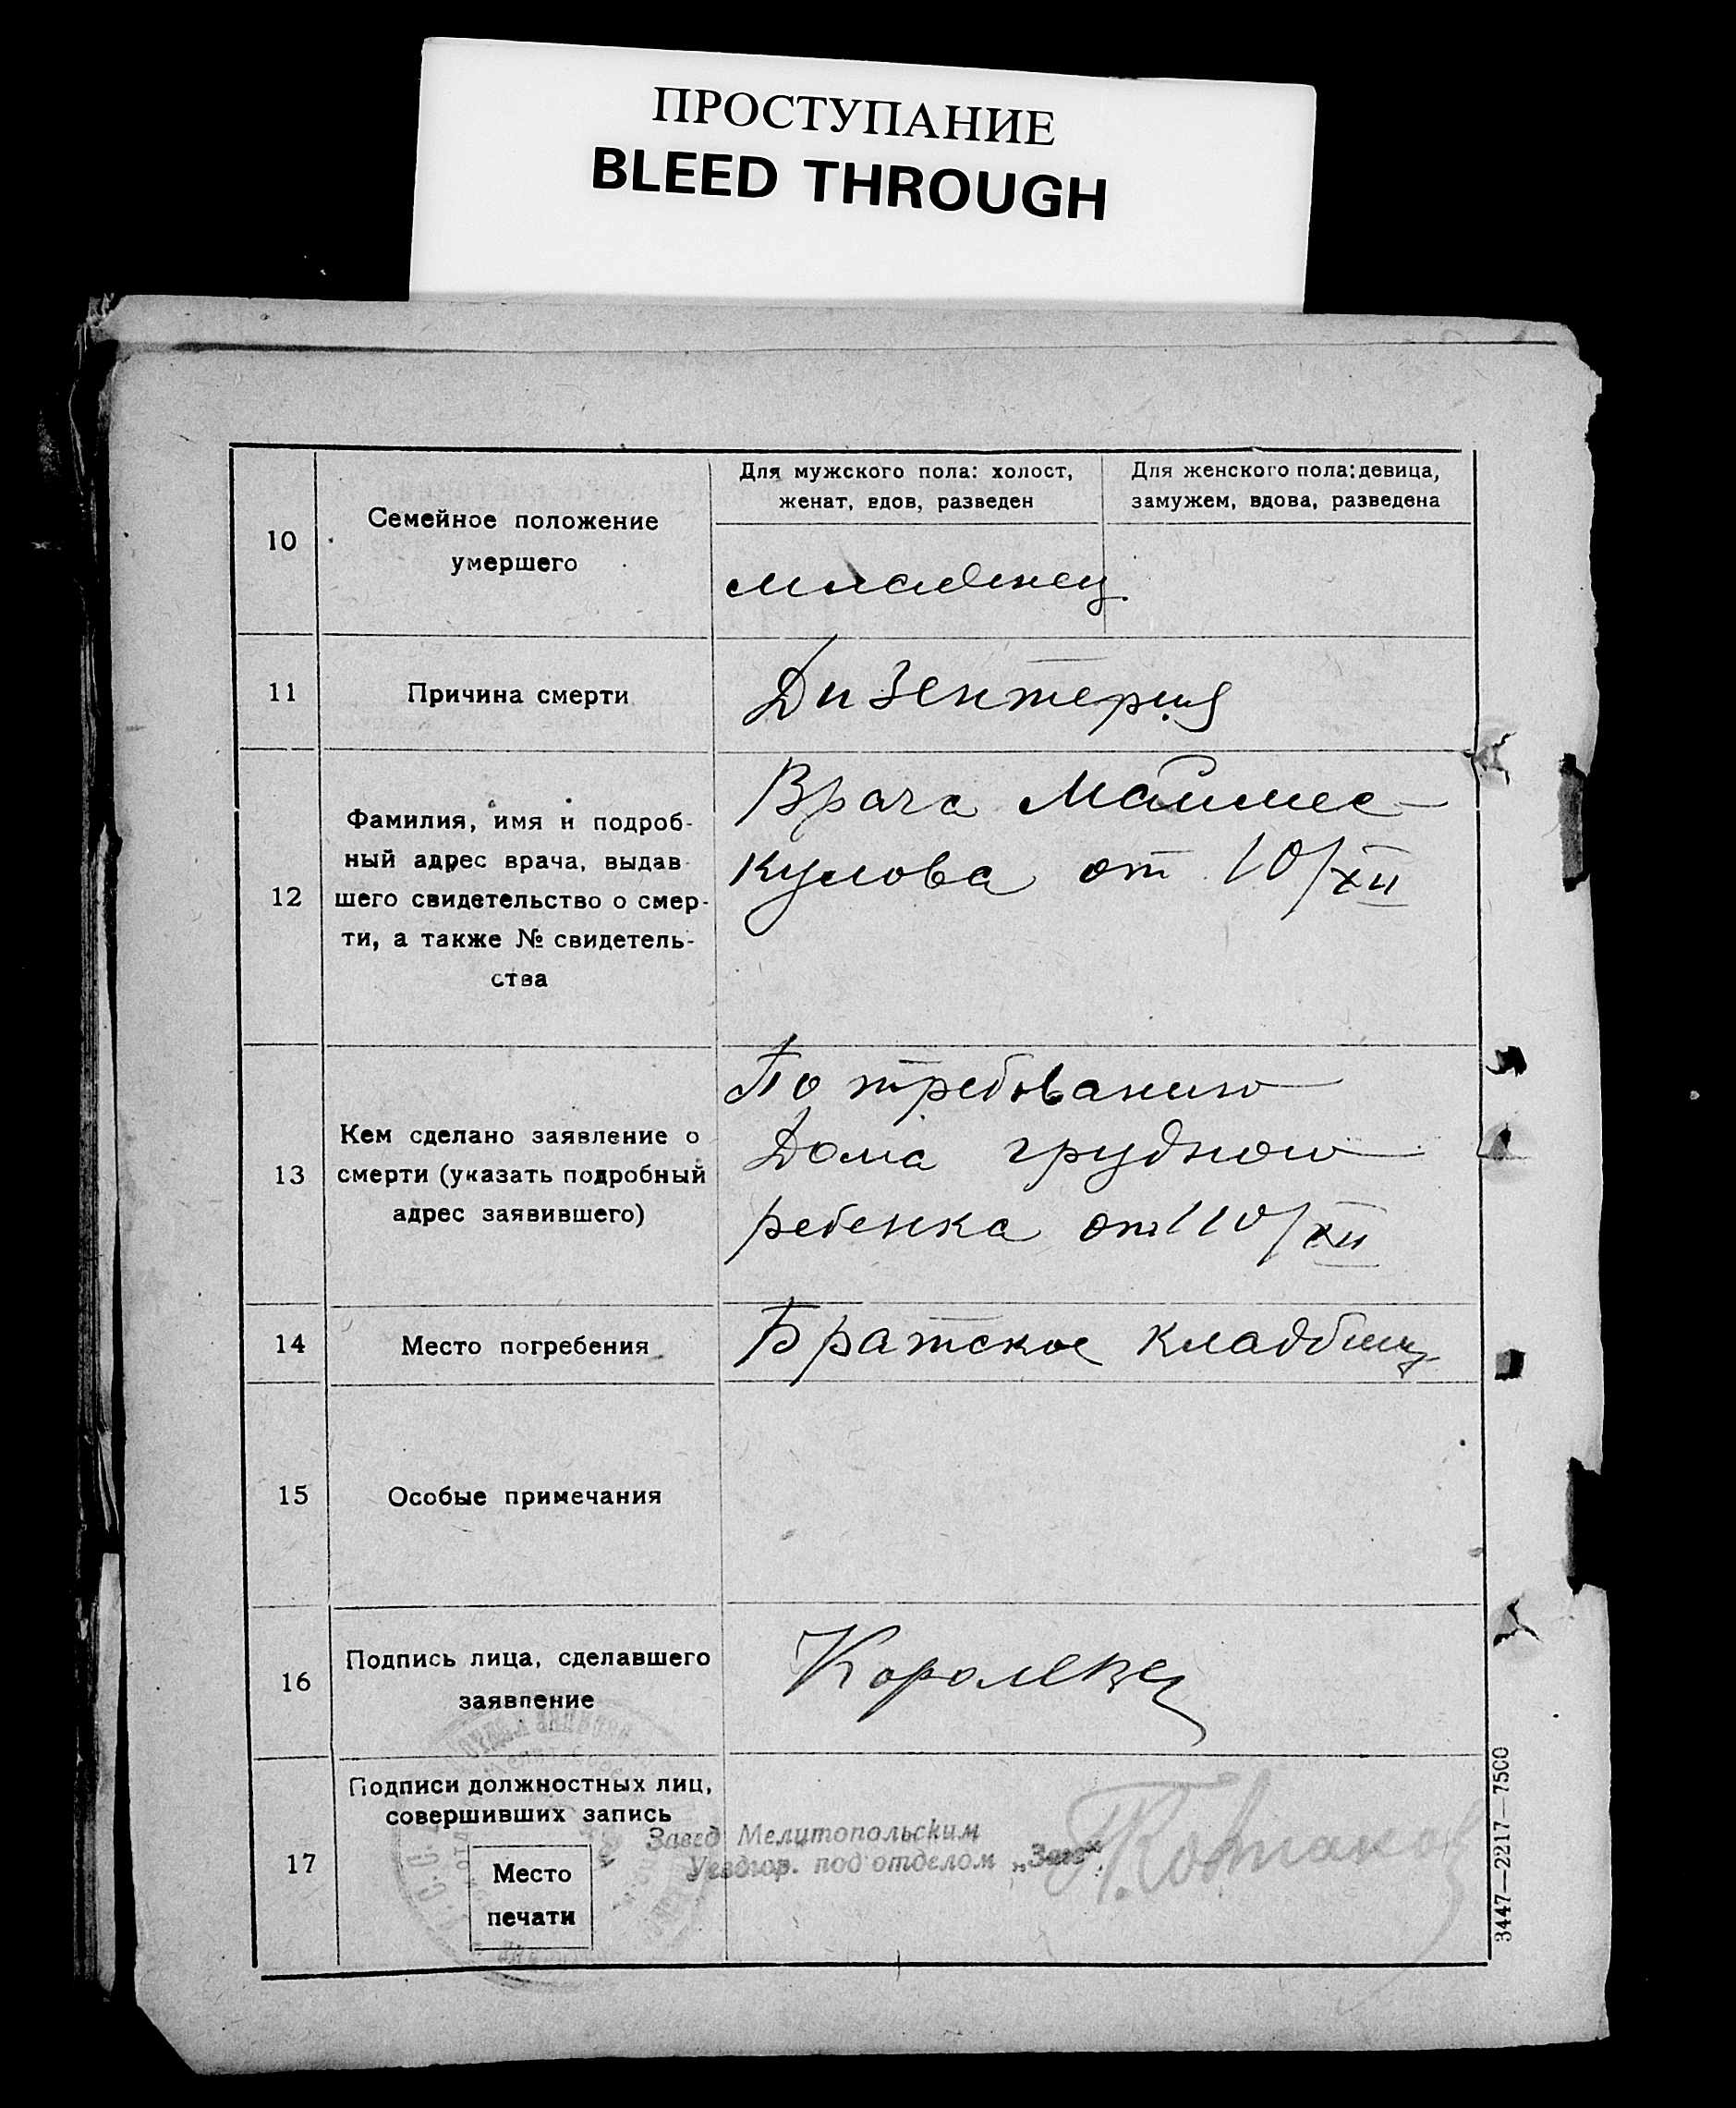 ПРОСТУПАНИЕ
BLEED THROUGH
10
Семейное положение
умершего
Для мужского пола: холост,
женат, вдов, разведен
Для женского пола: девица,
замужем, вдова, разведена
младенец
11
Причина смерти
Дизентерия
12
Фамилия, имя и подроб-
ный адрес врача, выдав-
шего свидетельство о смер-
ти, а также № свидетель-
ства
Врача
кулова от 10/XII
13
Кем сделано заявление о
смерти (указать подробный
адрес заявившего)
По требованию
Дома грудного
ребенка от 10/XII
14
Место погребения
Братское кладбищ
15
Особые примечания
16
Подпись лица, сделавшего
заявление
17
Подписи должностных лиц,
совершивших запись
Место
печати
Завед. Мелитопольским
Уездгор. подотделом „Загс"
3447—2217—7500